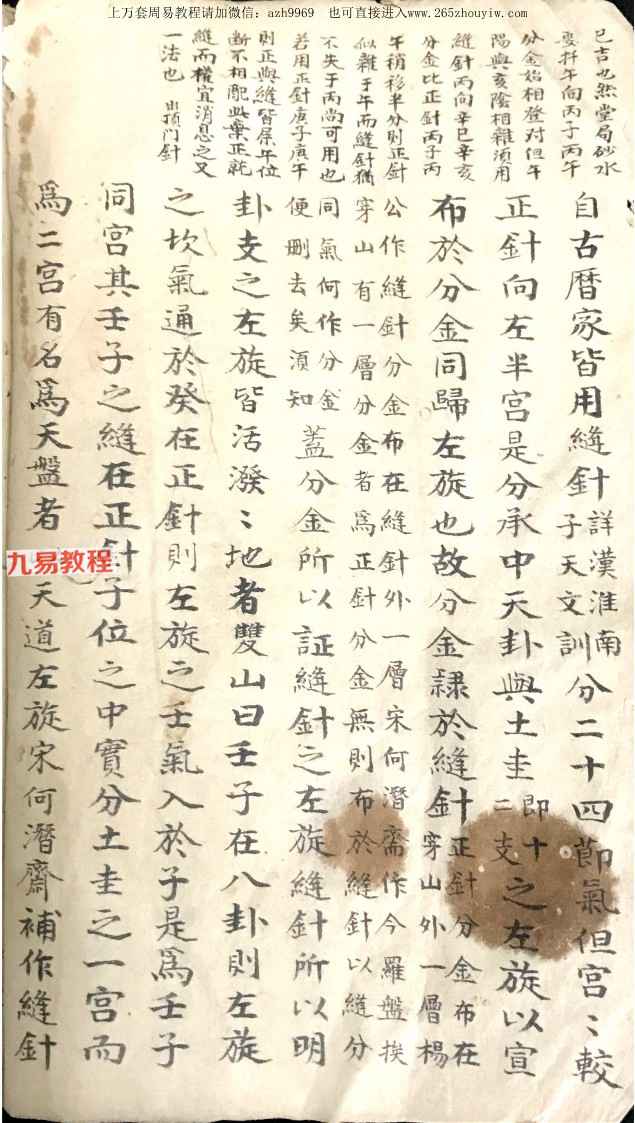 上万套周易教程请加微信：azh9969 也可直接进入www.265zhouyiw.com
已吉也然堂局砂水
要扦午向丙子丙午
分金始相登对但午
陽與亥陰相雜須用
縫針丙向辛巳辛亥
分金比正針丙子丙
午稍移半分則正針
似雜于午而縫針猶
不失于丙尚可用也
若用正針庚子庚午
則正與縫皆屬午位
斷不相配與棄正就
縫而權宜消息之又
一法也
自古曆家皆用縫針詳漢淮南子天文訓分二十四節氣但宮〻較
正針向左半宮是分承中天卦與土圭即十二支之左旋以宣
布於分金同歸左旋也故分金隷於縫針正針分金布在穿山外一層楊
公作縫針分金布在縫針外一層宋何潛齋作今羅盤挨穿山有一層分金者為正針分金無則布於縫針以縫分
同氣何作分金便刪去矣須知蓋分金所以証縫針之左旋縫針所以明
卦支之左旋皆活潑〻地者雙山曰壬子在八卦則左旋
之坎氣通於癸在正針則左旋之壬氣入於子是爲壬子
同宮其壬子之縫在正針子位之中實分土圭之一宮而
爲二宮有名爲天盤者天道左旋宋何潛齋補作縫針
九易教程